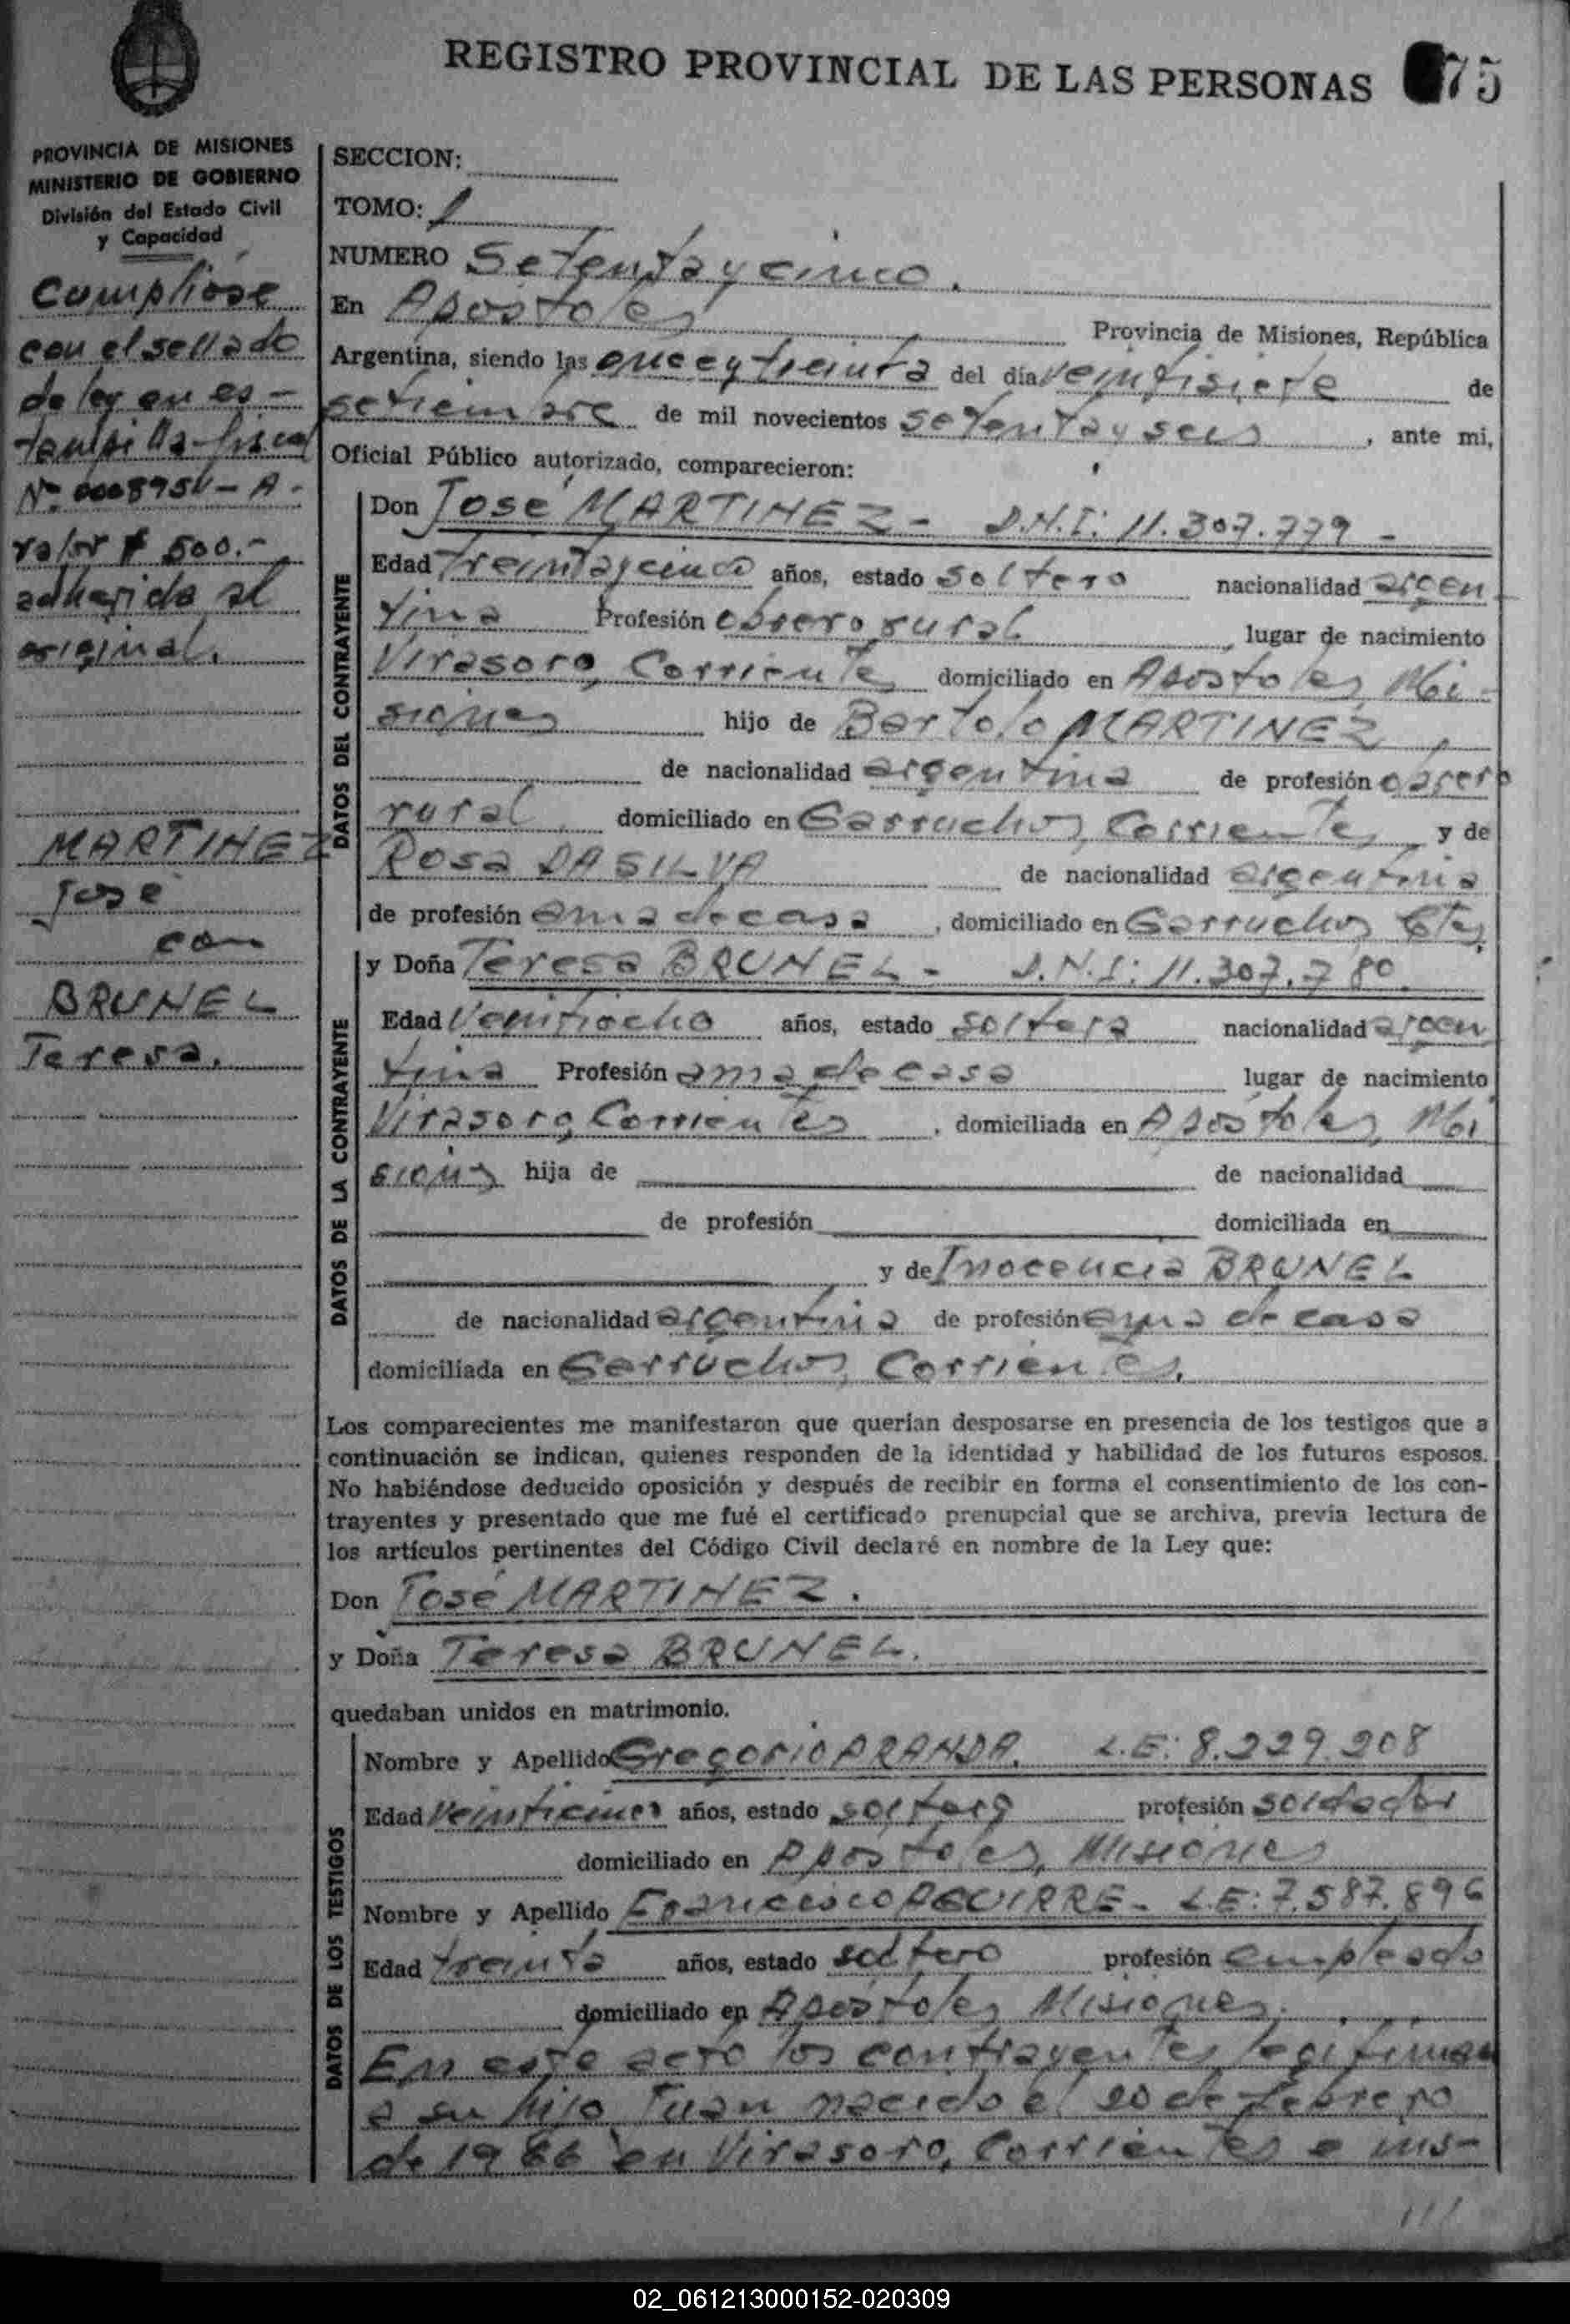 REGISTRO PROVINCIAL DE LAS PERSONAS 75
PROVINCIA DE MISIONES
MINISTERIO DE GOBIERNO
División del Estado Civil
y Capacidad
Cumplióse
con el sellado
de ley en es-
tampilla fiscal
Nº 0008954-A-
valor $ 500.-
adherida al
original.
MARTINEZ
José
con
BRUNEL
Teresa.
SECCION:
TOMO: 1
NUMERO Setenta y cinco.
En Apóstoles Provincia de Misiones, República
Argentina, siendo las once y treinta del día veintisiete de
setiembre de mil novecientos setenta y seis, ante mi,
Oficial Público autorizado, comparecieron:
DATOS DEL CONTRAYENTE
Don José MARTINEZ - D.N.I: 11.307.779 -
Edad Treinta y cinco años, estado soltero nacionalidad argen
tina Profesión obrero rural, lugar de nacimiento
Virasoro, Corrientes domiciliado en Apóstoles, Mi-
siones hijo de Bartolo MARTINEZ,
de nacionalidad argentina de profesión obrero
rural domiciliado en Garruchos, Corrientes y de
Rosa DA SILVA de nacionalidad argentina
de profesión ama de casa, domiciliado en Garruchos, Ctes.
DATOS DE LA CONTRAYENTE
y Doña Teresa BRUNEL - D.N.I: 11.307.780.
Edad Veintiocho años, estado soltera nacionalidad argen
tina Profesión ama de casa lugar de nacimiento
Virasoro, Corrientes, domiciliada en Apóstoles, Mi
siones hija de de nacionalidad
de profesión domiciliada en
y de Inocencia BRUNEL
de nacionalidad argentina de profesión ama de casa
domiciliada en Garruchos, Corrientes.
Los comparecientes me manifestaron que querían desposarse en presencia de los testigos que a
continuación se indican, quienes responden de la identidad y habilidad de los futuros esposos.
No habiéndose deducido oposición y después de recibir en forma el consentimiento de los con-
trayentes y presentado que me fué el certificado prenupcial que se archiva, previa lectura de
los artículos pertinentes del Código Civil declaré en nombre de la Ley que:
Don José MARTINEZ.
y Doña Teresa BRUNEL.
quedaban unidos en matrimonio.
DATOS DE LOS TESTIGOS
Nombre y Apellido Gregorio ARANDA. L.E: 8.229.208
Edad Veinticinco años, estado soltero profesión soldador
domiciliado en Apóstoles, Misiones
Nombre y Apellido Francisco AGUIRRE - L.E: 7.587.896
Edad treinta años, estado soltero profesión empleado
domiciliado en Apóstoles, Misiones.
En este acto los contrayentes legitiman
a su hijo Juan nacido el 20 de febrero
de 1966 en Virasoro, Corrientes e ins-
///
02_061213000152-020309